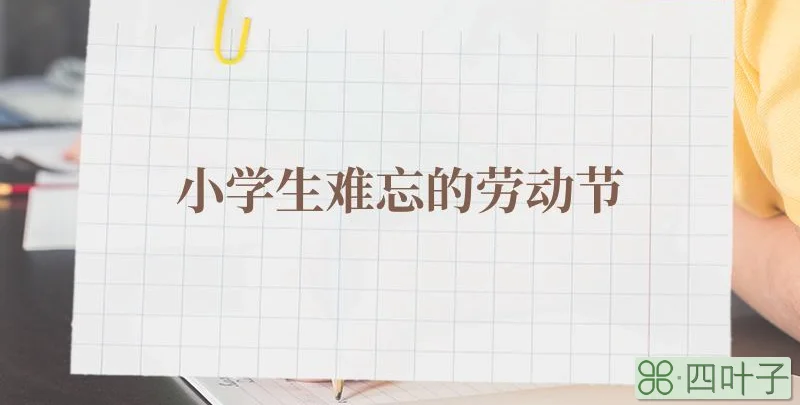 小学生难忘的劳动节
四叶子